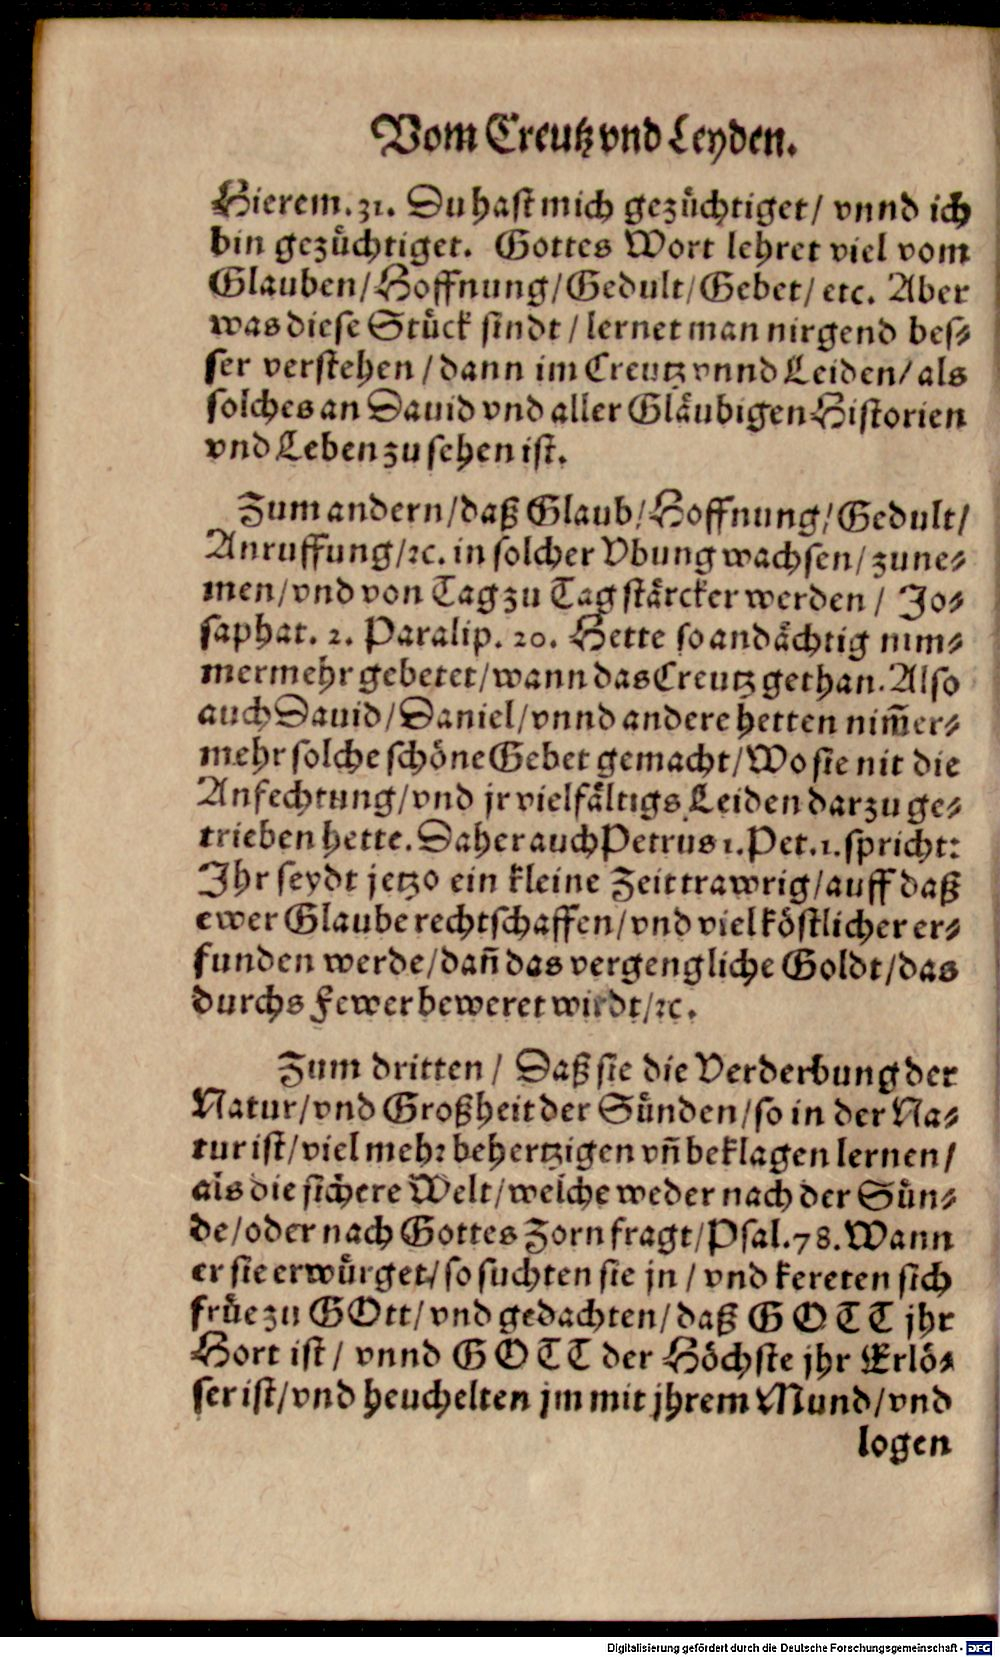 Vom Creutz vnd Leyden.
Hierem. 31. Du hast mich gezüchtiget/ vnnd ich
bin gezüchtiget. Gottes Wort lehret viel vom
Glauben/Hoffnung/Gedult/Gebet/ etc. Aber
was diese Stück sindt / lernet man nirgend bes-
ser verstehen / dann im Creutz vnnd Leiden/ als
solches an Dauid vnd aller Gläubigen Historien
vnd Leben zu sehen ist.
Zum andern/daß Glaub/Hoffnung/Gedult/
Anruffung/ꝛc. in solcher Vbung wachsen/ zune-
men/vnd von Tag zu Tag stärcker werden / Jo-
saphat. 2. Paralip. 20. Hette so andächtig nim-
mermehr gebetet/wann das Creutz gethan. Also
auch Dauid/Daniel/vnnd andere hetten nim̃er-
mehr solche schöne Gebet gemacht/Wo sie nit die
Anfechtung/vnd jr vielfältigs Leiden darzu ge-
trieben hette. Daher auch Petrus 1. Pet. 1. spricht:
Ihr seydt jetzo ein kleine Zeit trawrig/auff daß
ewer Glaube rechtschaffen/vnd viel köstlicher er-
funden werde/dañ das vergengliche Goldt/das
durchs Fewer beweret wirdt/ꝛc.
Zum dritten / Daß sie die Verderbung der
Natur/vnd Großheit der Sünden/so in der Na-
tur ist/viel mehr behertzigen vñ beklagen lernen/
als die sichere Welt/welche weder nach der Sün-
de/oder nach Gottes Zorn fragt/Psal. 78. Wann
er sie erwürget/so suchten sie jn / vnd kereten sich
früe zu GOtt/vnd gedachten/daß GOTT jhr
Hort ist/ vnnd GOTT der Höchste jhr Erlö-
ser ist/vnd heuchelten jm mit jhrem Mund/vnd
logen
Digitalisierung gefördert durch die Deutsche Forschungsgemeinschaft - DFG